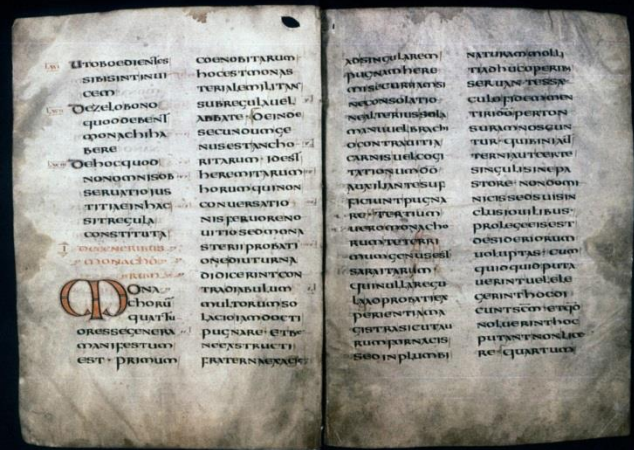 UTOBOEDIENTES
SIBISINTINUI
CEM
DEZELOBONO
QUODDEBENT
MONACHIHA
BERE
DEHOCQUOD
NONOMNISOB
SERUATIOIUS
TITIAEINHAC
SITREGULA
CONSTITUTA
DEGENERIBUS
MONACHO
RUM
MONA
CHORŪ
QUATTU
ORESSEGENERA
MANIFESTUM
EST · PRIMUM
COENOBITARUM
HOCESTMONAS
TERIALEMILITAN
SUBREGULAUEL
ABBATE · DEINDE
SECUNDUMGE
NUSESTANCHO
RITARUM · IDEST
HEREMITARUM
HORUMQUINON
CONUERSATIO
NISFERUORENO
UITIOSEDMONA
STERIIPROBATI
ONEDIUTURNA
DIDICERINTCON
TRADIABULUM
MULTORUMSO
LACIOIAMDOCTI
PUGNARE · ETBE
NEEXSTRUCTI
FRATERNAEXACIE
ADSINGULAREM
PUGNAMHERE
MISECURIIAMSI
NECONSOLATIO
NEALTERIUSSOLA
MANUUELBRACHI
OCONTRAUITIA
CARNISUELCOGI
TATIONUMDO
AUXILIANTESUF
FICIUNTPUGNA
RE · TERTIUM
UEROMONACHO
RUMTETERRI
MUMGENUSEST
SARAITARUM
QUINULLAREGU
LAADPROBATIEX
PERIENTIAMA
GISTRASICUTAU
RUMFORNACIS
SEDINPLUMBI
NATURAMMOLLI
TIADHUCOPERIB
SERUANTESSAE
CULOFIDEMMEN
TIRIDOPERTON
SURAMNOSCUN
TUR · QUIBINIAUT
TERNIAUTCERTE
SINGULISINEPA
STORE · NONDOMI
NICISSEDSUISIN
CLUSIOUILIBUS
PROLEGEEISEST
DESIDERIORUM
UOLUPTAS · CUM
QUIDQUIDPUTA
UERINTUELELE
GERINTHOCDI
CUNTSCM · ETQD
NOLUERINTHOC
PUTANTNONLICE
RE · QUARTUM